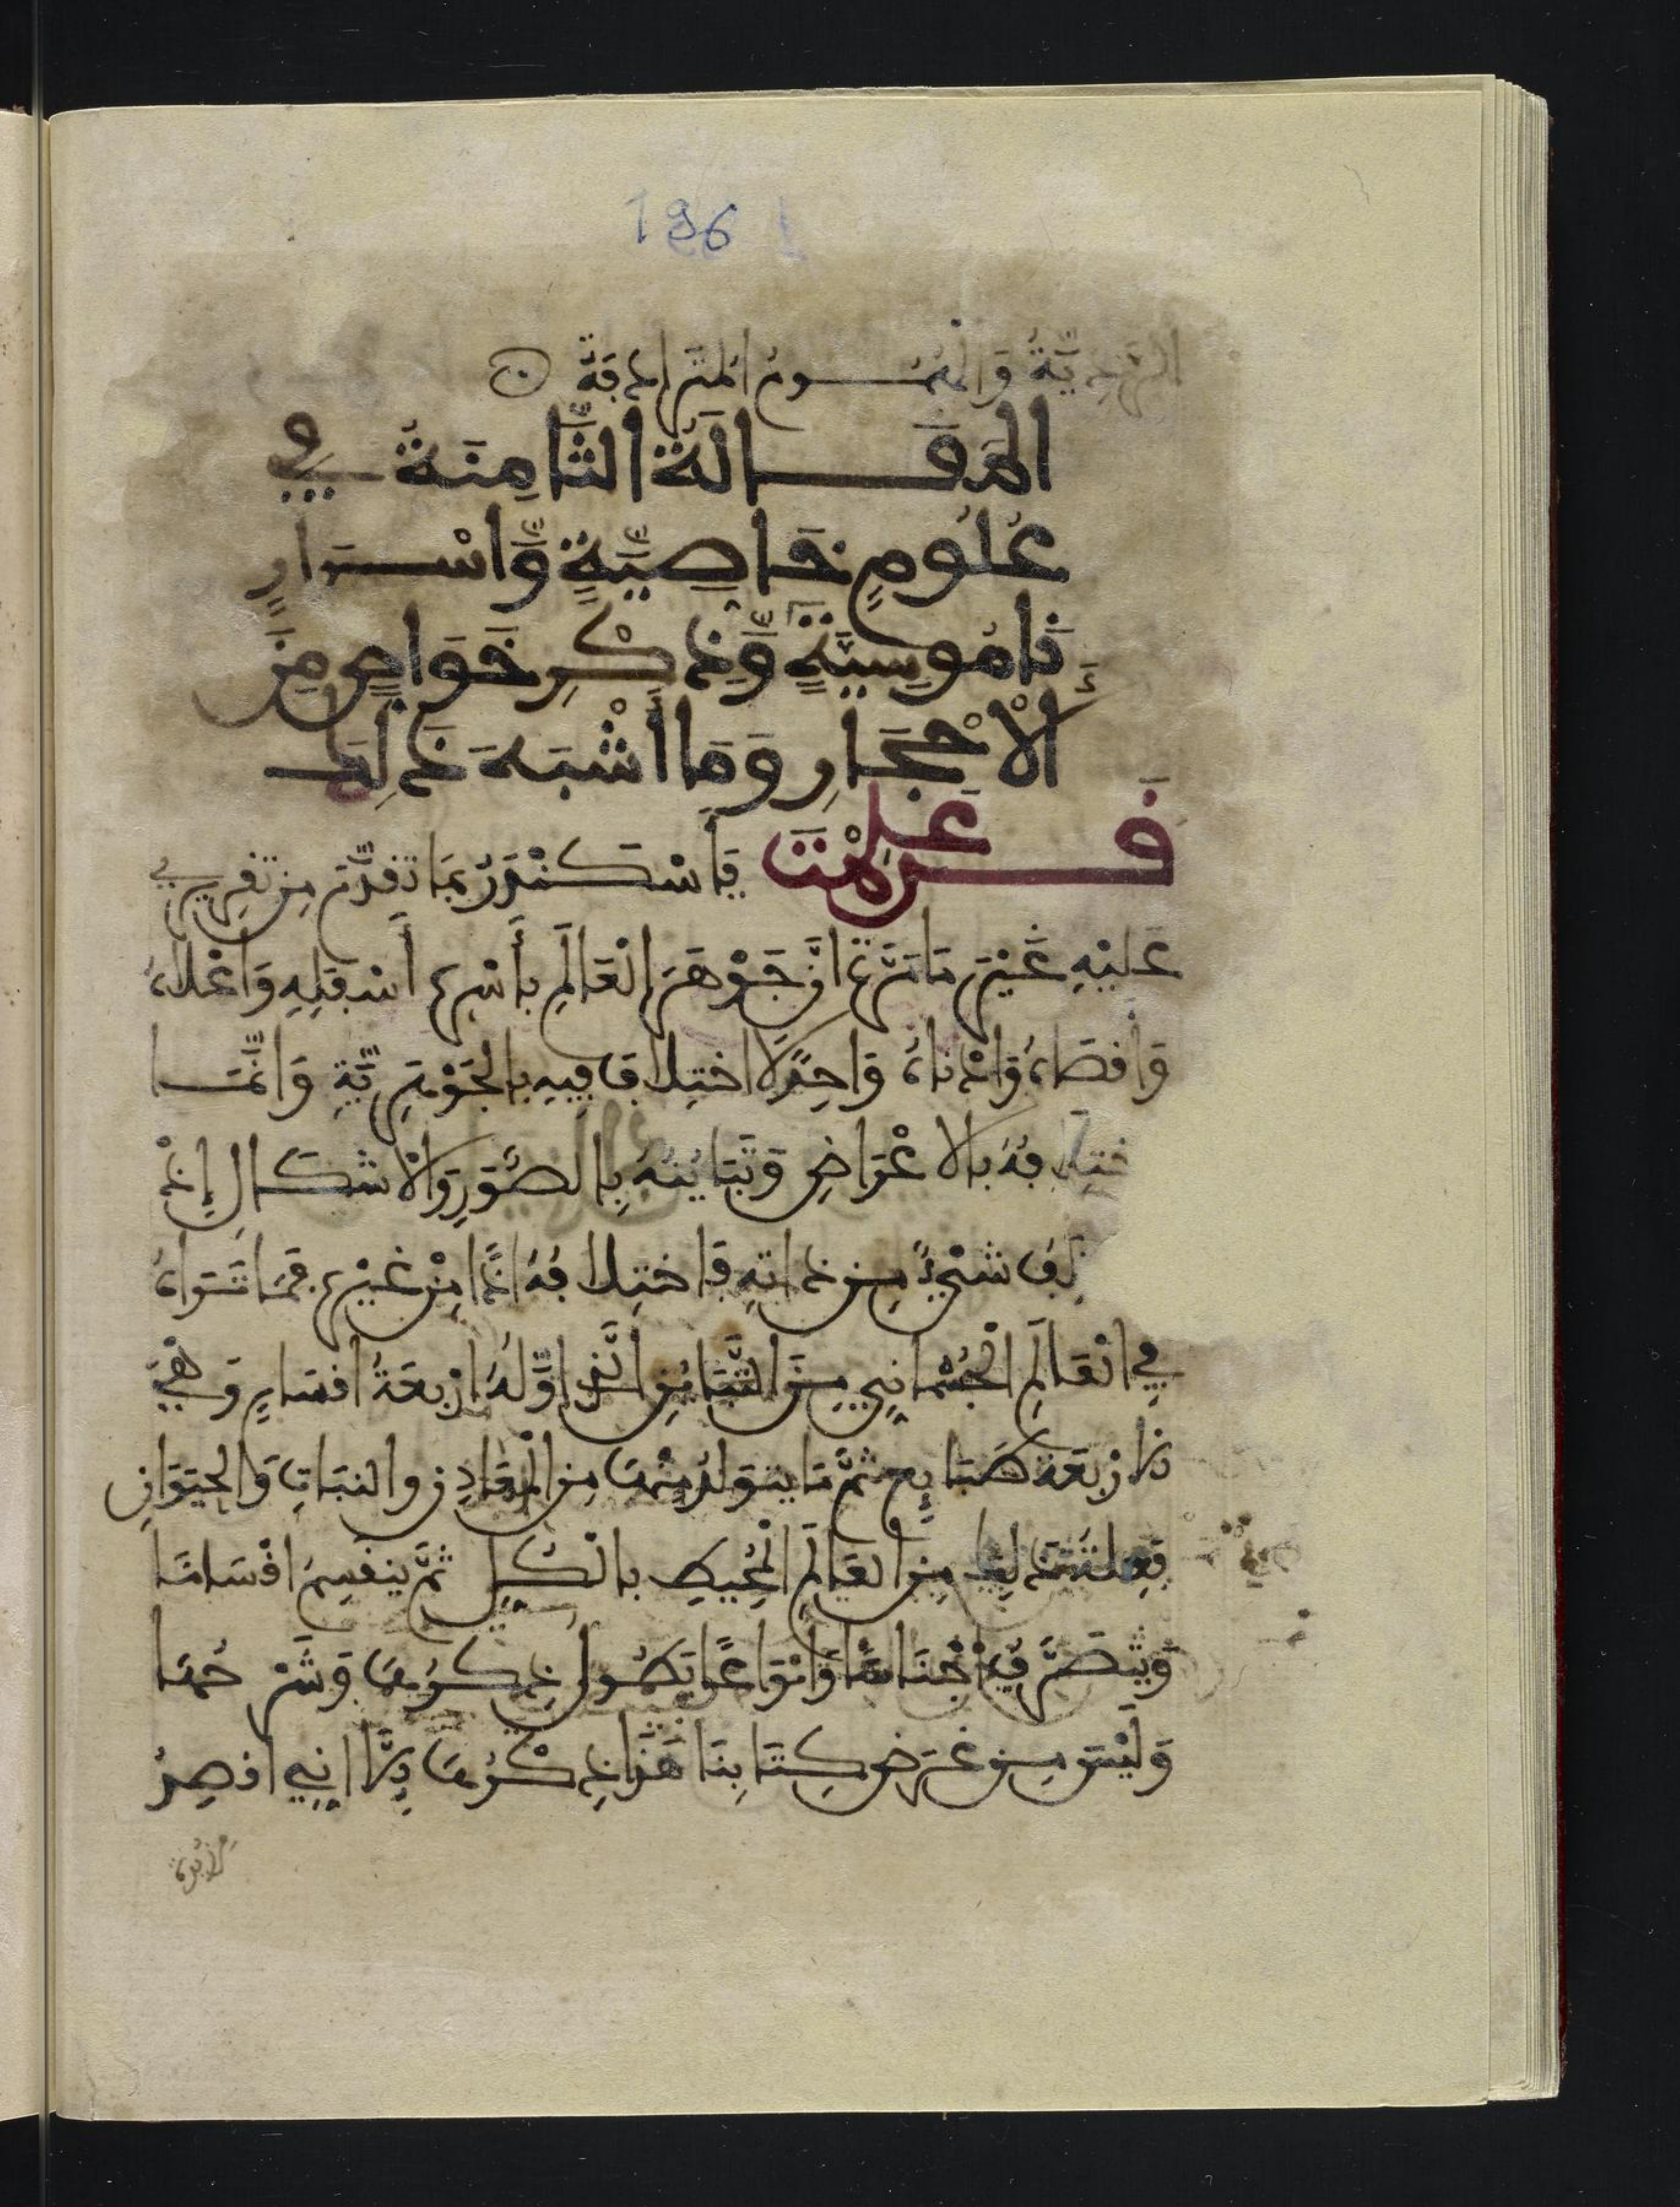 196
المَقَالَةُ الثَّامِنَةُ فِي
عُلُومٍ خَاصِيَّةٍ وَّاسْرَارٍ
نَامُوسِيَّةٍ وَّذِكْرِ خَوَاصٍ مِنَ
الْأَحْجَارِ وَمَا أَشْبَهَ ذَلِكَ
قَد عَلِمْتَ يَا سْكَنْدَرُ بِمَا تقدَّمَ مِن تقرِيرِي
عَلَيْهِ غَيْرَ مَا مَرَّة انَّ جَوْهَرَ الْعَالَمِ بِأَسْرِه أَسْفَلِهِ وَاَعْلَاهُ
وَأَقصَاهُ وَادْنَاهُ وَاحِدٌ لَا اختِلَاف فِيهِ بِالجَوْهَرِيَّةِ وَانَّمَا
ختِلَافُهُ بِالاعْرَاضِ وَتَبَايُنُهُ بِالصُّوَرِ وَالْأَشكَالِ إِذْ
شَيْءٌ مِن ذاتِهِ فَاختِلافُهُ اذًا مِنْ غَيْرِه فَمَا تَرَاهُ
فِي الْعَالَمِ الْجُسْمَانِيِ مِنَ التَّبَايُنِ الَّذِي اوَّلُهُ ارْبعَةُ اقسَامٍ وَهْيَ
الارْبَعَة طَبَايِع ثمَّ مَا يتوَلدُ مِنْهَا مِن الْمَعَادِنِ والنبَاتِ وَالحيَوَانِ
فعِلَّتُهُ ذَلِكَ مِنَ العَالَمِ الْمُحِيطِ بِالْكُلِّ ثمَّ ينقَسِمُ اقْسَامًا
وَيتَصَرَّفُ اجْنَاسًا وَانْوَاعًا يَطُولُ ذِكرُهَا وَشَرْحُهَا
وَلَيْسَ مِن غَرَضِ كِتَابِنَا هَذَا ذِكْرُهَا لِأَنِّي اقصِدُ